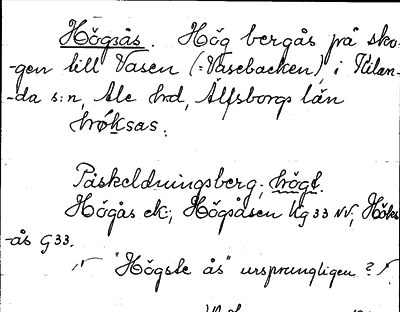 Högsås. Hög bergås på sko-
-gen till Vasen (=Vasebacken), i Kilan-
-da s:n, Ale hrd, Älfsborgs län
hröksas.
Påskeldningsberg; högt.
Högås ek; Högsåsen Kg 33 NV; Höks-
-ås G 33.
"Högste ås" ursprungligen?